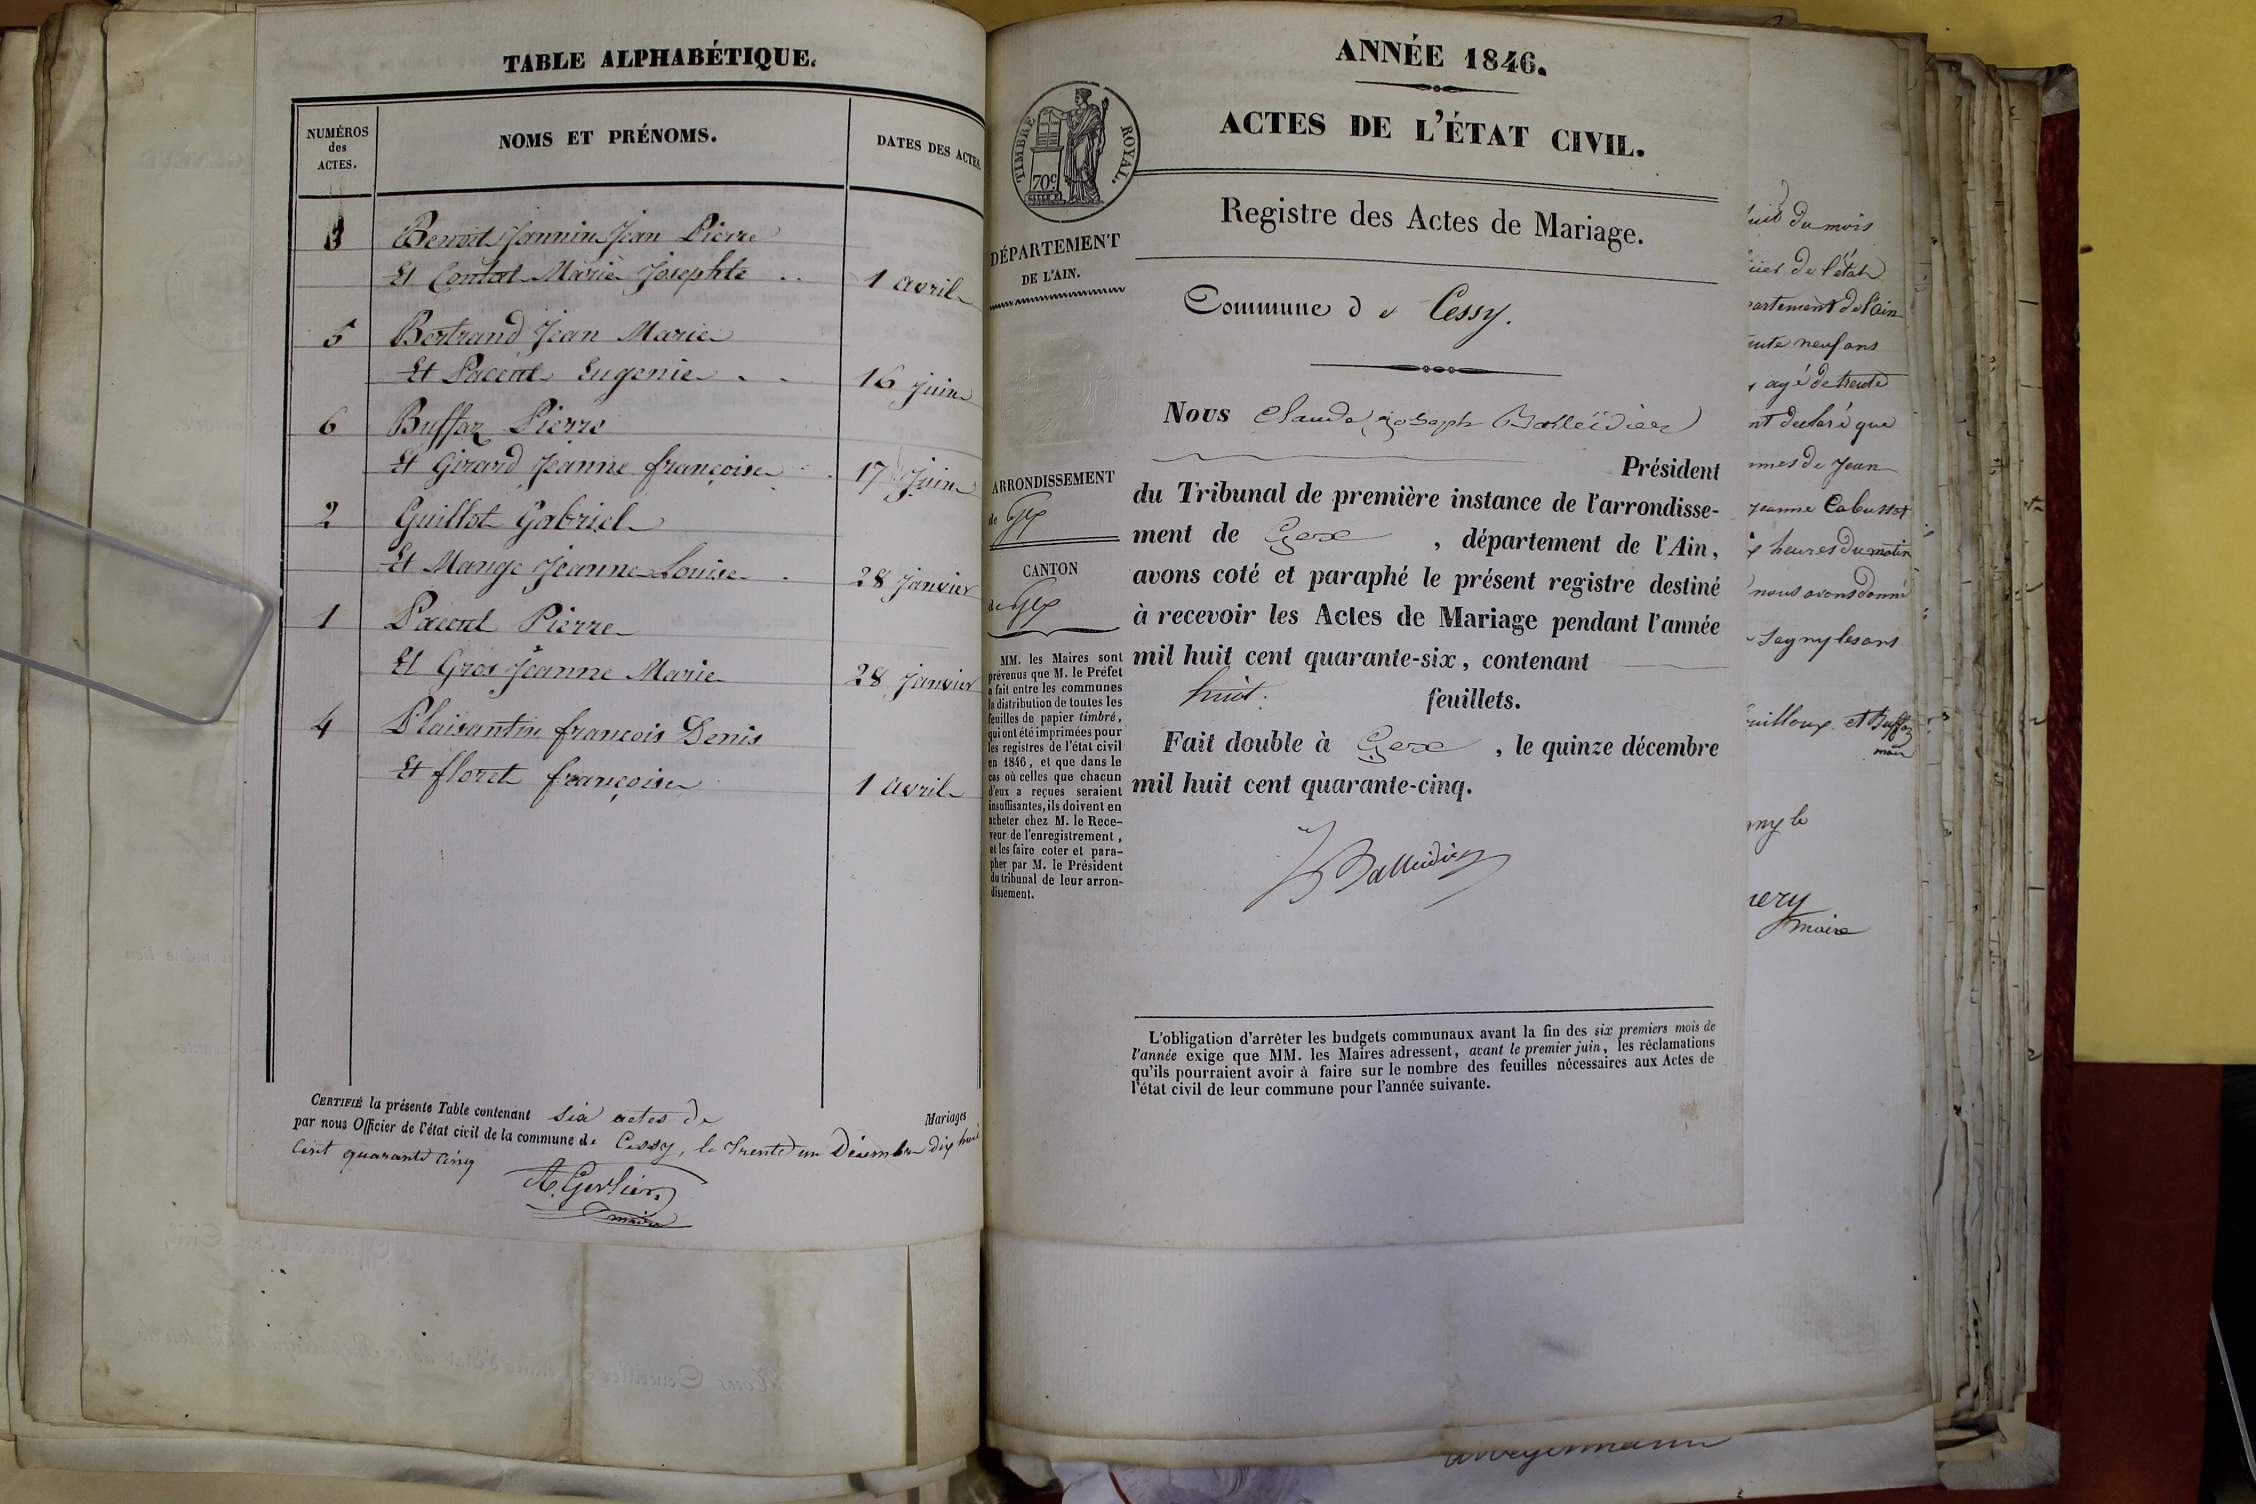 TABLE ALPHABÉTIQUE.
NUMÉROS des ACTES.
NOMS ET PRÉNOMS.
DATES DES ACTES
3 Benoit Jannin Jean Pierre
Et Contat Marie Josephte .. 1 avril
5 Bertrand Jean Marie
Et Pacoul Eugenie . . 16 juin
6 Buffaz Pierre
Et Girard Jeanne françoise . 17 Juin
2 Guillot Gabriel
Et Mange Jeanne Louise . 28 Janvier
1 Pacoul Pierre
Et Gros Jeanne Marie 28 Janvier
4 Plaisantin francois Denis
Et floret françoise 1 avril
CERTIFIÉ la présente Table contenant six actes de Mariages
par nous Officier de l'état civil de la commune de Cessy, le trente un Décembre dix huit
cent quarante cinq
A. Gerlier
maire
ANNÉE 1846.
ACTES DE L'ÉTAT CIVIL.
TIMBRE ROYAL.
70c
Registre des Actes de Mariage.
DÉPARTEMENT
DE L'AIN.
Commune de Cessy.
Nous Claude Joseph Balleidier
Président
du Tribunal de première instance de l'arrondisse-
ment de Gex , département de l'Ain,
avons coté et paraphé le présent registre destiné
à recevoir les Actes de Mariage pendant l'année
mil huit cent quarante-six, contenant
huit. feuillets.
Fait double à Gex , le quinze décembre
mil huit cent quarante-cinq.
Balleidier
ARRONDISSEMENT
de Gex
CANTON
de Gex
MM. les Maires sont
prévenus que M. le Préfet
a fait entre les communes
la distribution de toutes les
feuilles de papier timbré,
qui ont été imprimées pour
les registres de l'état civil
en 1846, et que dans le
cas où celles que chacun
d'eux a reçues seraient
insuffisantes, ils doivent en
acheter chez M. le Rece-
veur de l'enregistrement,
et les faire coter et para-
pher par M. le Président
du tribunal de leur arron-
dissement.
L'obligation d'arrêter les budgets communaux avant la fin des six premiers mois de
l'année exige que MM. les Maires adressent, avant le premier juin, les réclamations
qu'ils pourraient avoir à faire sur le nombre des feuilles nécessaires aux Actes de
l'état civil de leur commune pour l'année suivante.
du mois
de l'état
artement de l'ain
neuf ans
agé de trente
nt declaré que
de Jean
Jeanne Cabussat
heures du matin
nous avons donné
Segny les ans
et Buffaz
maire
ny le
nery
maire